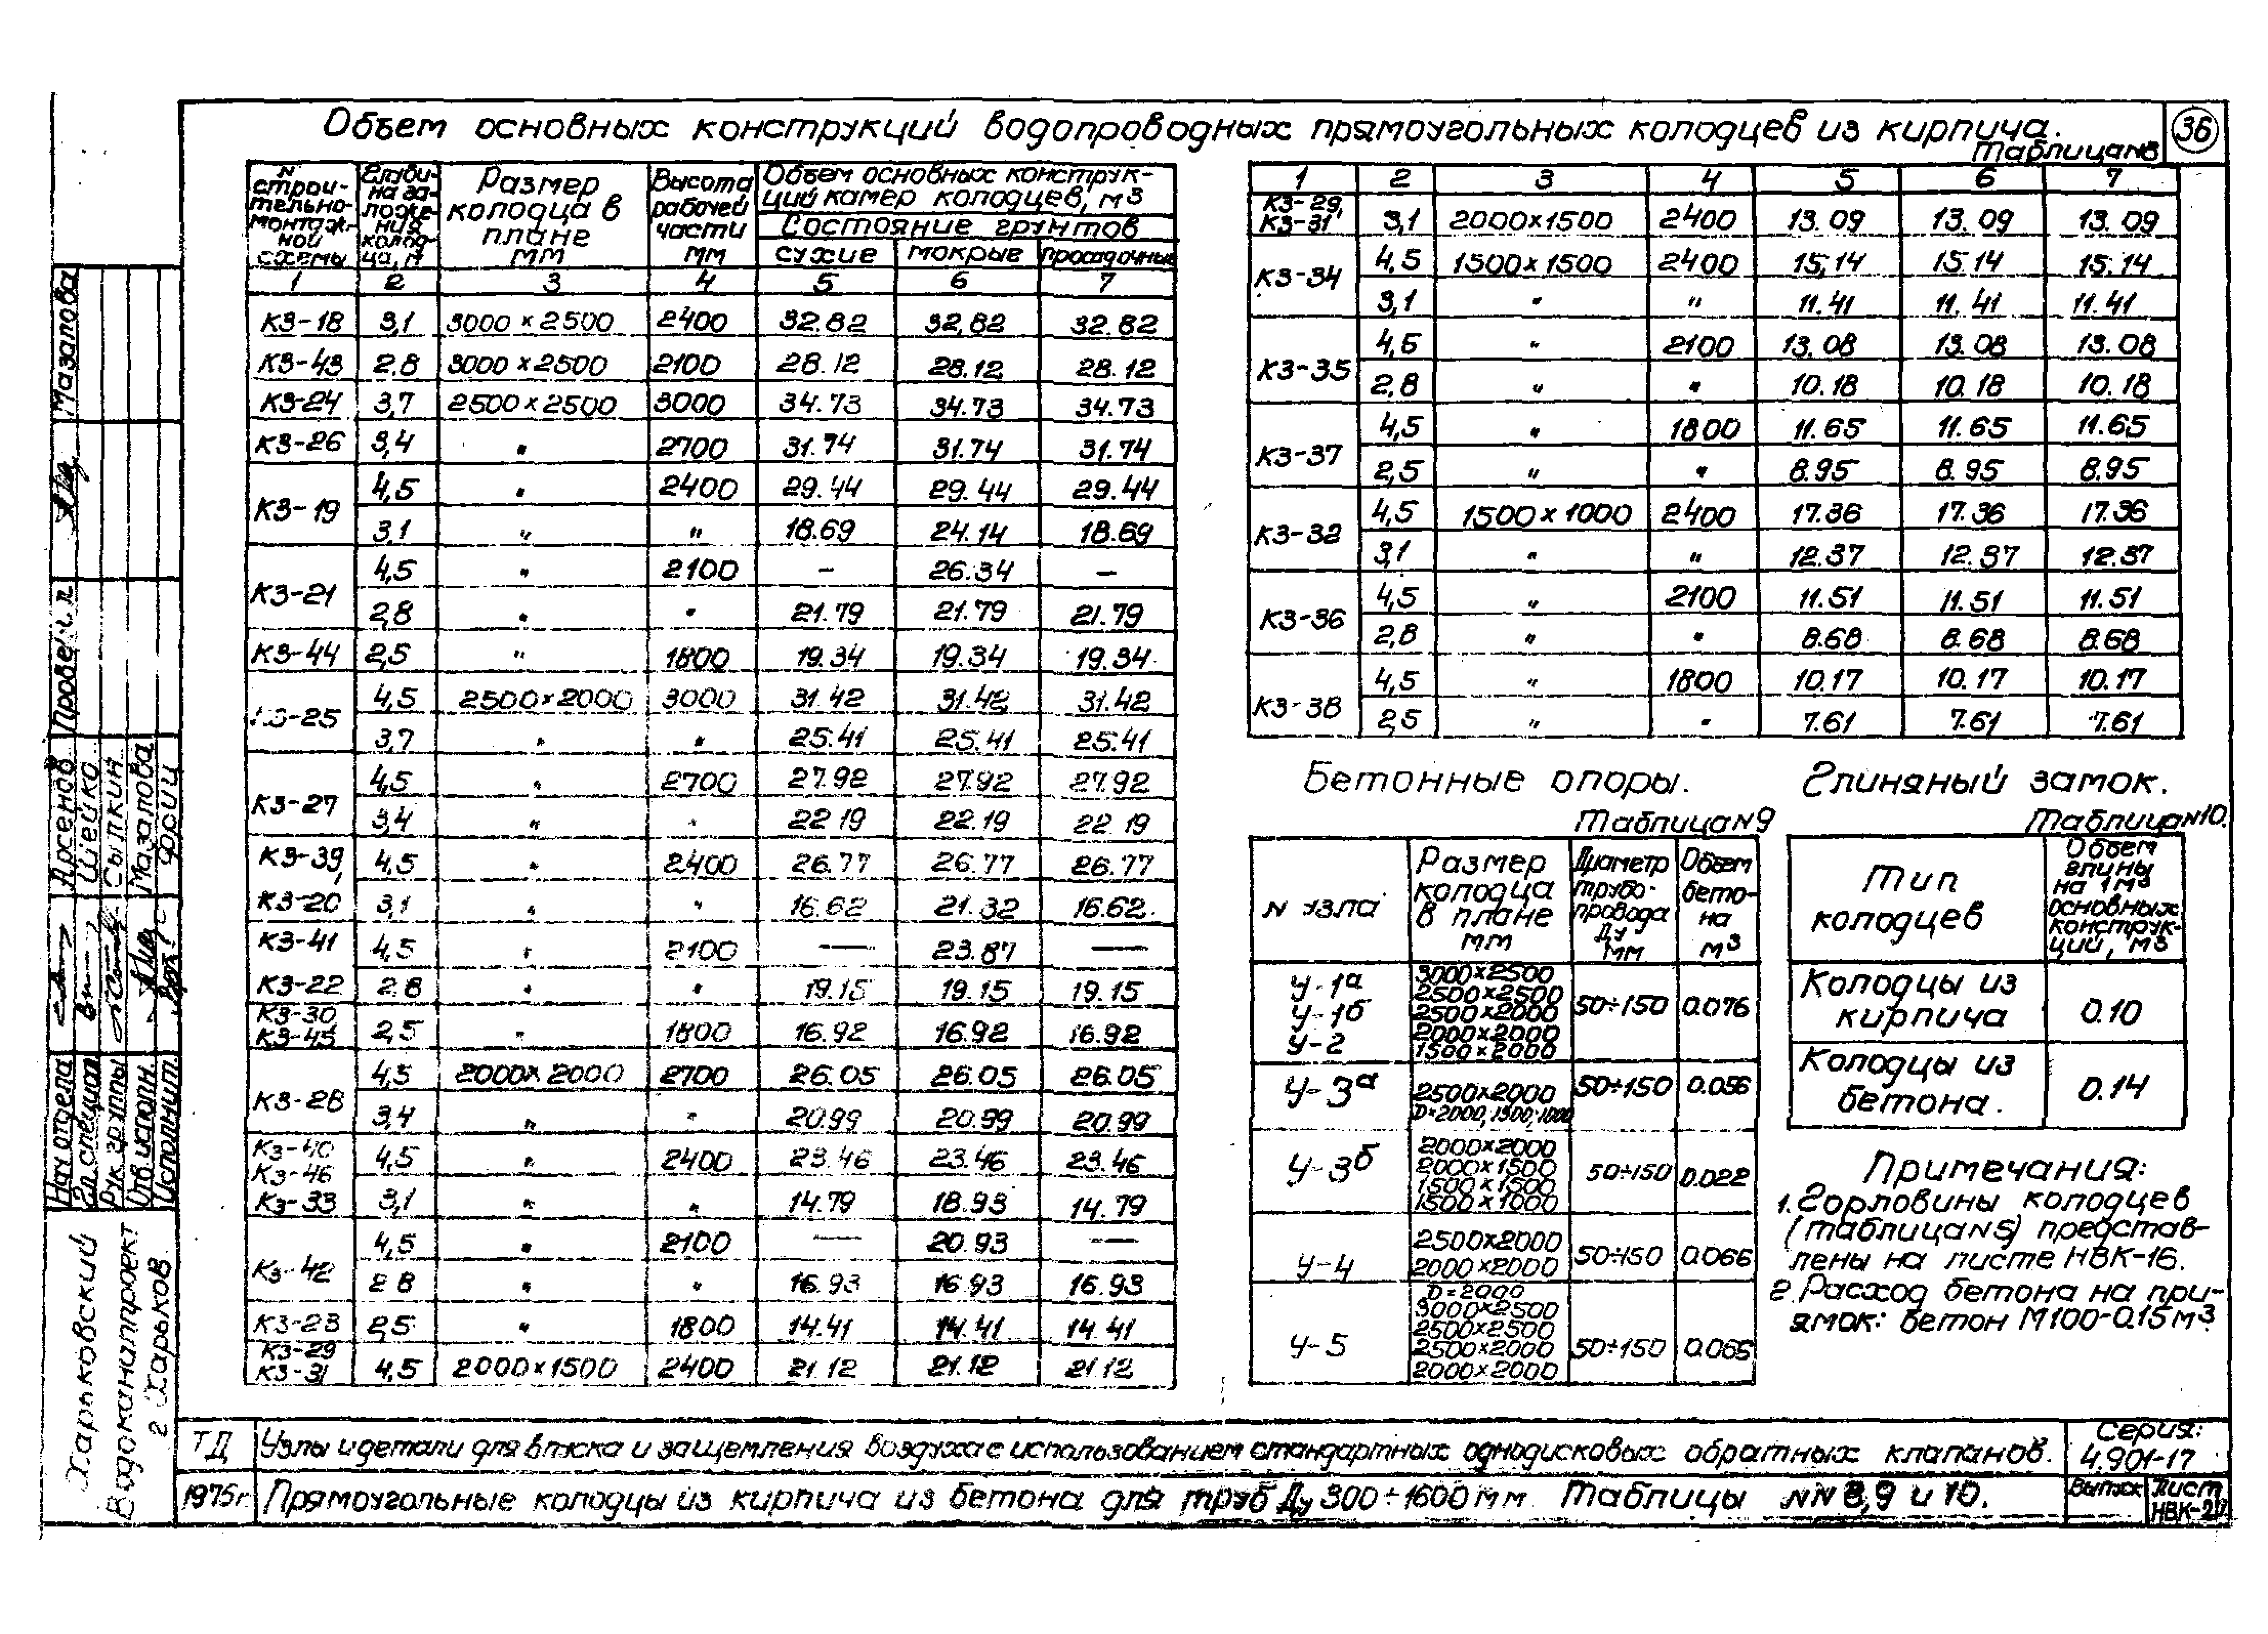 Объем основных конструкций водопроводных прямоугольных колодцев из кирпича.
36
Таблица N8
N строи-тельно-монтаж-ной схемы | Глуби-на за-ложе-ния колод-ца, м | Размер колодца в плане мм | Высота рабочей части мм | Объем основных конструк-ций камер колодцев, м3
Состояние грунтов
сухие | мокрые | просадочные
1 2 3 4 5 6 7
КЗ-18 3,1 3000×2500 2400 32.82 32,82 32.82
КЗ-43 2.8 3000×2500 2100 28.12 28.12 28.12
КЗ-24 3,7 2500×2500 3000 34.73 34.73 34.73
КЗ-26 3,4 " 2700 31.74 31.74 31.74
КЗ-19 4,5 " 2400 29.44 29.44 29.44
3,1 " " 18.69 24.14 18.69
КЗ-21 4,5 " 2100 — 26.34 —
2,8 " " 21.79 21.79 21.79
КЗ-44 2,5 " 1800 19.34 19.34 19.34
КЗ-25 4,5 2500×2000 3000 31.42 31.42 31.42
3,7 " " 25.41 25.41 25.41
КЗ-27 4,5 " 2700 27.92 27.92 27.92
3,4 " " 22 19 22.19 22 19
КЗ-39, 4,5 " 2400 26.77 26.77 26.77
КЗ-20 3,1 " " 16.62 21.32 16.62
КЗ-41 4,5 " 2100 — 23.87 —
КЗ-22 2 8 " " 19.15 19.15 19.15
КЗ-30
КЗ-45 2,5 " 1800 16.92 16.92 16.92
КЗ-28 4,5 2000×2000 2700 26.05 26.05 26.05
3,4 " " 20.99 20.99 20.99
КЗ-40
КЗ-46 4,5 " 2400 23.46 23.46 23.46
КЗ-33 3,1 " " 14.79 18.93 14.79
КЗ-42 4,5 " 2100 — 20.93 —
2 8 " " 16.93 16.93 16.93
КЗ-23 2,5 " 1800 14.41 14.41 14 41
КЗ-29
КЗ-31 4,5 2000×1500 2400 21.12 21.12 21.12
1 2 3 4 5 6 7
КЗ-29,
КЗ-31 3,1 2000×1500 2400 13.09 13.09 13.09
КЗ-34 4,5 1500×1500 2400 15,14 15.14 15.14
3,1 " " 11.41 11.41 11.41
КЗ-35 4,5 " 2100 13.08 13.08 13.08
2,8 " " 10.18 10.18 10.18
КЗ-37 4,5 " 1800 11.65 11.65 11.65
2,5 " " 8.95 8.95 8.95
КЗ-32 4,5 1500×1000 2400 17.36 17.36 17.36
3,1 " " 12.37 12.37 12.37
КЗ-36 4,5 " 2100 11.51 11.51 11.51
2,8 " " 8.68 8.68 8.68
КЗ-38 4,5 " 1800 10.17 10.17 10.17
2,5 " " 7.61 7.61 7.61
Бетонные опоры.
Таблица N9
N узла | Размер колодца в плане мм | Диаметр трубо-провода Ду мм | Объем бето-на м3
У-1а
У-1б
У-2
3000×2500
2500×2500
2500×2000
2000×2000
1500×2000
50÷150 0.076
У-3а
2500×2000
D=2000, 1500, 1000
50÷150 0.056
У-3б
2000×2000
2000×1500
1500×1500
1500×1000
50÷150 0.022
У-4
2500×2000
2000×2000
50÷150 0.066
У-5
D=2000
3000×2500
2500×2500
2500×2000
2000×2000
50÷150 0.065
Глиняный замок.
Таблица N10.
Тип колодцев | Объем глины на 1м3 основных конструк-ций, м3
Колодцы из
кирпича
0.10
Колодцы из
бетона.
0.14
Примечания:
1. Горловины колодцев
(таблица N5) представ-
лены на листе НВК-16.
2. Расход бетона на при-
ямок: бетон М100-0.15м3
ТД
Узлы и детали для впуска и защемления воздуха с использованием стандартных однодисковых обратных клапанов.
Серия:
4.901-17
1975г.
Прямоугольные колодцы из кирпича из бетона для труб Ду 300÷1600мм. Таблицы NN 8,9 и 10.
Выпуск
Лист
Мазапова
Провер.
Арсенов
Шейко
Сыпкин
Мазапова
Нач отдела
Гл. специал
Рук. группы
Отв. исполн.
Исполнит.
Харьковский
Водоканалпроект
г. Харьков